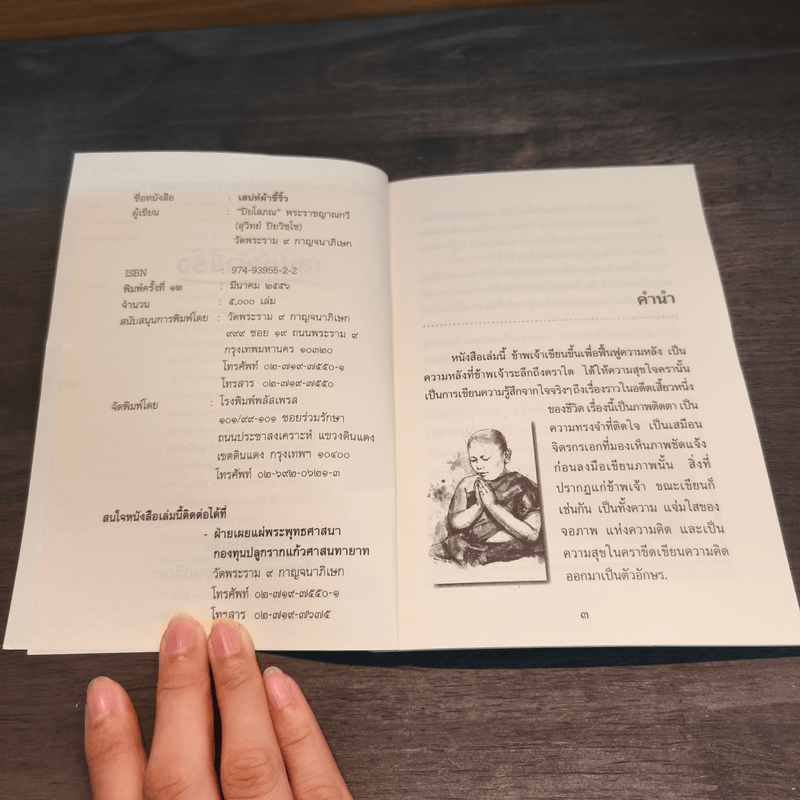 ชื่อหนังสือ : เสน่ห์ผ้าขี้ริ้ว
ผู้เขียน : "ปิยโสภณ" พระราชญาณกวี
(สุวิทย์ ปิยวิชฺโช)
วัดพระราม ๙ กาญจนาภิเษก
ISBN : 974-93955-2-2
พิมพ์ครั้งที่ ๑๒ : มีนาคม ๒๕๕๖
จำนวน : ๕,๐๐๐ เล่ม
สนับสนุนการพิมพ์โดย : วัดพระราม ๙ กาญจนาภิเษก
๙๙๙ ซอย ๑๙ ถนนพระราม ๙
กรุงเทพมหานคร ๑๐๓๒๐
โทรศัพท์ ๐๒-๗๑๙-๗๕๕๐-๑
โทรสาร ๐๒-๗๑๙-๗๕๕๐
จัดพิมพ์โดย : โรงพิมพ์พลัสเพรส
๑๐๑/๙๙-๑๐๑ ซอยร่วมรักษา
ถนนประชาสงเคราะห์ แขวงดินแดง
เขตดินแดง กรุงเทพฯ ๑๐๔๐๐
โทรศัพท์ ๐๒-๖๙๒-๐๖๒๑-๓
สนใจหนังสือเล่มนี้ติดต่อได้ที่
- ฝ่ายเผยแผ่พระพุทธศาสนา
กองทุนปลูกรากแก้วศาสนทายาท
วัดพระราม ๙ กาญจนาภิเษก
โทรศัพท์ ๐๒-๗๑๙-๗๕๕๐-๑
โทรสาร ๐๒-๗๑๙-๗๖๗๕
คำนำ
หนังสือเล่มนี้ ข้าพเจ้าเขียนขึ้นเพื่อฟื้นฟูความหลัง เป็น
ความหลังที่ข้าพเจ้าระลึกถึงคราใด ได้ให้ความสุขใจครานั้น
เป็นการเขียนความรู้สึกจากใจจริงๆ ถึงเรื่องราวในอดีตเสี้ยวหนึ่ง
ของชีวิต เรื่องนี้เป็นภาพติดตา เป็น
ความทรงจำที่ติดใจ เป็นเสมือน
จิตรกรเอกที่มองเห็นภาพชัดแจ้ง
ก่อนลงมือเขียนภาพนั้น สิ่งที่
ปรากฏแก่ข้าพเจ้า ขณะเขียนก็
เช่นกัน เป็นทั้งความ แจ่มใสของ
จอภาพ แห่งความคิด และเป็น
ความสุขในคราขีดเขียนความคิด
ออกมาเป็นตัวอักษร.
๓